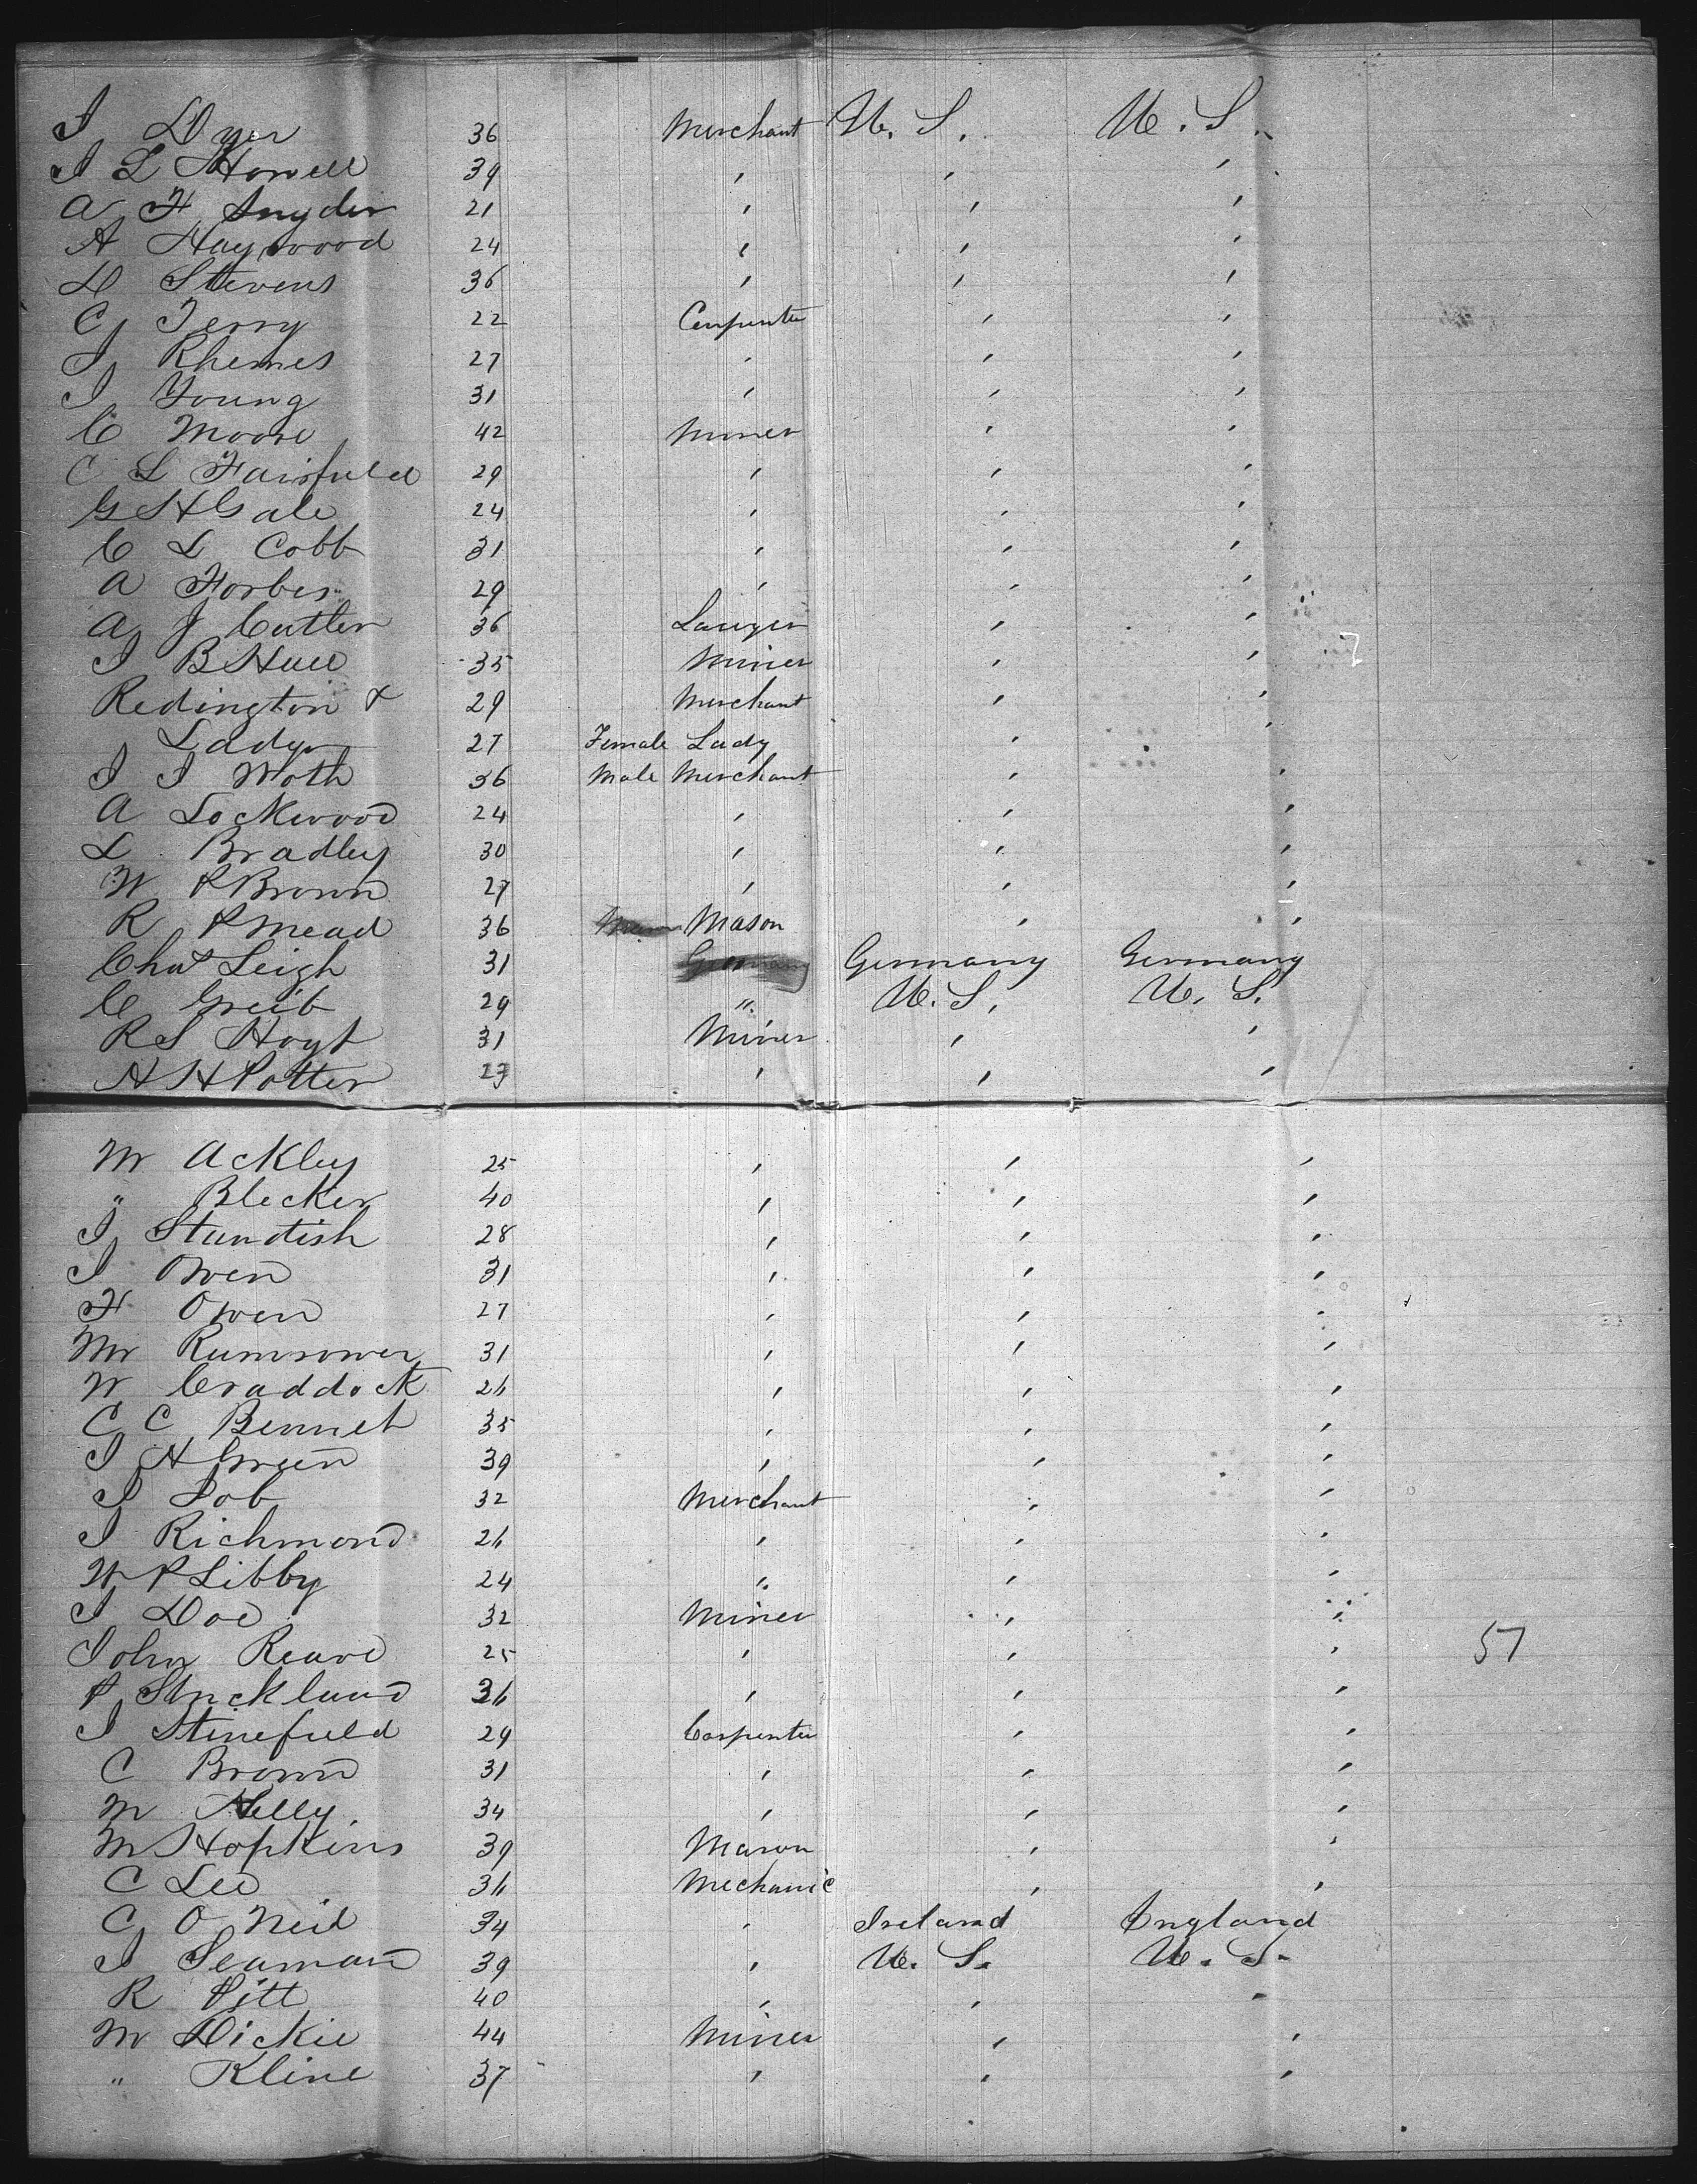 J Dyer 36 Merchant U. S. U. S.
J L Howell 39 " " "
A F Snyder 21 " " "
A Haywood 24 " " "
D Stevens 36 " " "
C Terry 22 Carpenter " "
J Rhemes 27 " " "
J Young 31 " " "
C Moore 42 Miner " "
C L Fairfield 29 " " "
G H Gale 24 " " "
C L Cobb 31 " " "
A Forbes 29 " " "
A J Cutler 36 Lawyer " "
J B Hull 35 Miner " "
Redington & 29 Merchant " "
Lady 27 Female Lady " "
J J Woth 36 Male Merchant " "
A Lockwood 24 " " "
L Bradley 30 " " "
W P Brown 27 " " "
R P Mead 36 Mason " "
Chas Leigh 31 Germany Germany
C Greib 29 " U. S. U. S.
R S Hoyt 31 Miner " "
A H Potter 23 " " "
Mr Ackley 25 " " "
" Blecker 40 " " "
J Standish 28 " " "
J Owen 31 " " "
F Owen 27 " " "
Mr Rumsower 31 " " "
W Craddock 26 " " "
C C Bennet 35 " " "
J H Green 39 " " "
J Job 32 Merchant " "
J Richmond 26 " " "
W P Libby 24 " " "
J Doe 32 Miner " "
John Reave 25 " " " 57
P Strickland 36 " " "
J Stinefield 29 Carpenter " "
C Brown 31 " " "
M Kelly 34 " " "
M Hopkins 39 Mason " "
C Lee 36 Mechanic " "
C O Neil 34 " Ireland England
J Seaman 39 " U. S. U. S.
R Pitt 40 " " "
Mr Dickie 44 Miner " "
" Kline 37 " " "